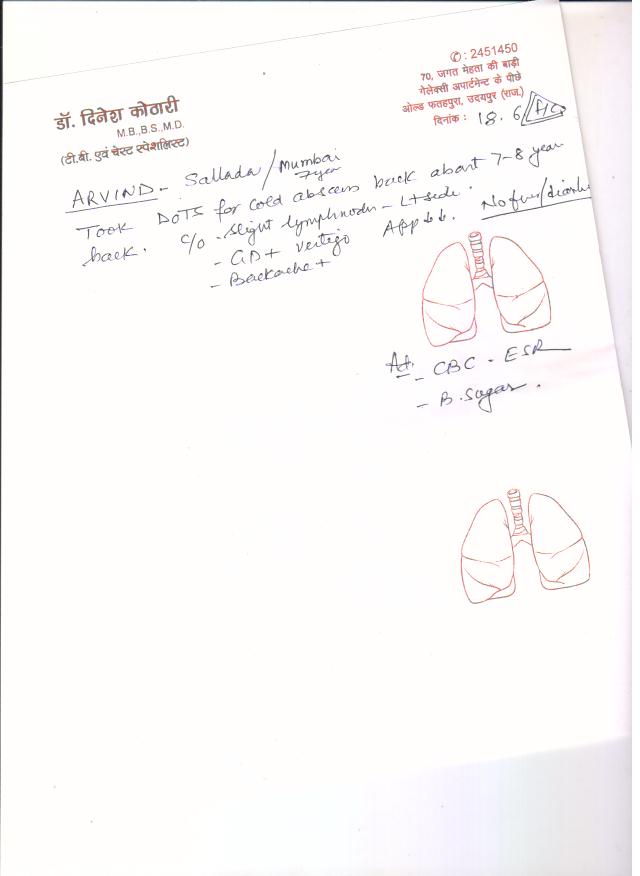 डॉ. दिनेश कोठारी
M.B.,B.S.,M.D.
(टी.बी. एवं चेस्ट स्पेशलिस्ट)
✆ : 2451450
70, जगत मेहता की बाड़ी
गेलेक्सी अपार्टमेन्ट के पीछे
ओल्ड फतहपुरा, उदयपुर (राज.)
दिनांक : 18.6
ARVIND - Sallada / Mumbai
7 year
Took DOTS for cold abscess back about 7-8 year
back. C/O - slight lymphnodes - Lt side.
- GD + vertigo App ↓↓. No fever/diarrh
- Backache +
Ad.
- CBC - ESR
- B. Sugar.